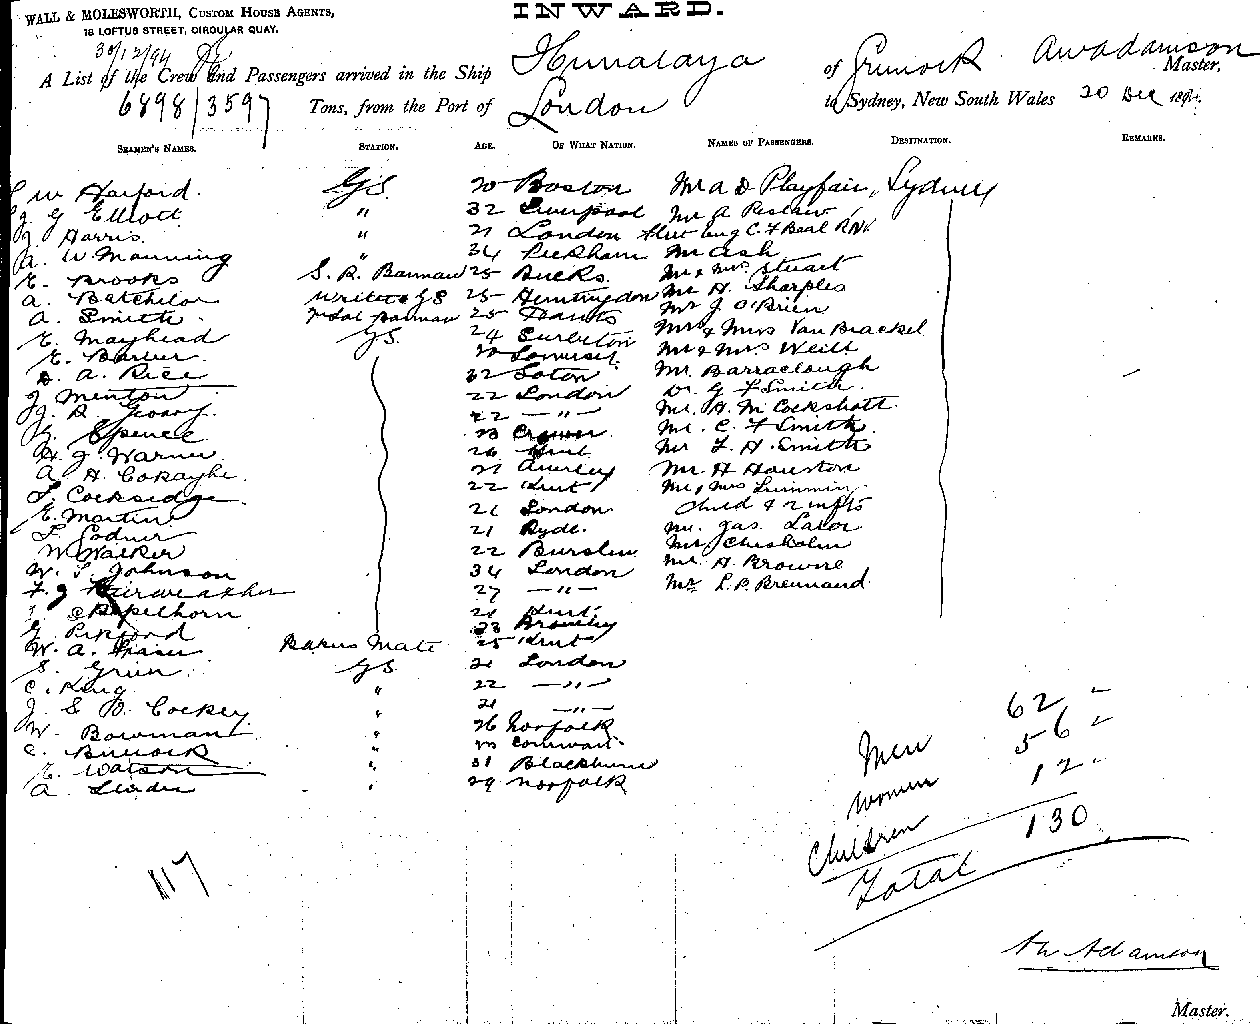 WALL & MOLESWORTH, CUSTOM HOUSE AGENTS,
18 LOFTUS STREET, CIRCULAR QUAY.
INWARD.
30/12/94
A List of the Crew and Passengers arrived in the Ship Himalaya of Greenock AW Adamson Master,
6898/3597 Tons, from the Port of London to Sydney, New South Wales 20 Dec 1894.
SEAMEN'S NAMES. STATION. AGE. OF WHAT NATION. NAMES OF PASSENGERS. DESTINATION. REMARKS.
W Harford. G.S. 20 Boston Mr A D Playfair, Sydney
J G Elliott " 32 Liverpool Mr A
J Harris. " 21 London C. F Beal R.N.
A. W Manning " 34 Peckham Mr Ash
E. Brooks S. R. Barman 25 Bucks. Mr & Mrs Stuart
A. Batchelor Writer & GS 25 Huntingdon Mr H. Sharples
A. Smith. Barman 25 Hants Mr J. O'Brien
E. Mayhead G.S. 24 Surbiton Mr & Mrs Van Brackel
E. Barber. 20 Somerset. Mr & Mrs Weill
A. Rice 32 Mr. Barraclough
J Menton 22 London Dr. G F Smith.
J. R. Geoary. 22 — " — Mr. H. M Cockshott.
Spence 23 Mr. C. F Smith.
H. J Warner 26 Kent Mr F. H. Smith
A H. Cokayne. 21 Anerley Mr. H Houston
Cocksedge 22 Kent Mr & Mrs
E. Martin 21 London Child & 2 infts
21 Ryde. Mr. Jas. Lalor
W. Walker 22 Burslem Mr Chisholm
W. Johnson 34 London Mr. A. Browne
F. J Fairweather 27 — " — Mr L. P. Brennand.
Appelhorn 21 Kent.
G. Pickford 23 Bromley
W. A. Fraser Bakers Mate 25 Kent
S. Green G.S. 21 London
C. King " 22 — " —
J. S. D. Cockey " 21 — " —
W. Bowman " 26 Norfolk
C. " Cornwall.
E. Watson " 31 Blackburn
A. " 29 Norfolk
Men 62 -
Women 56 -
Children 12 -
Total 130
117
AW Adamson
Master.